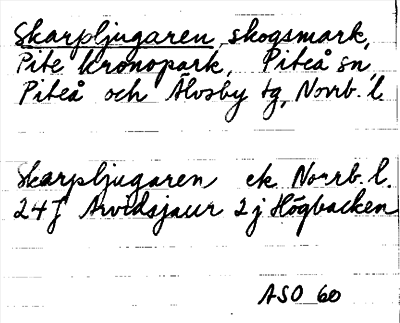 Skarpljugaren, skogsmark,
Pite kronopark, Piteå sn,
Piteå och Älvsby tg, Norrb. l.
Skarpljugaren ek. Norrb. l.
24 J Arvidsjaur 2 j Högbacken
ASO 60